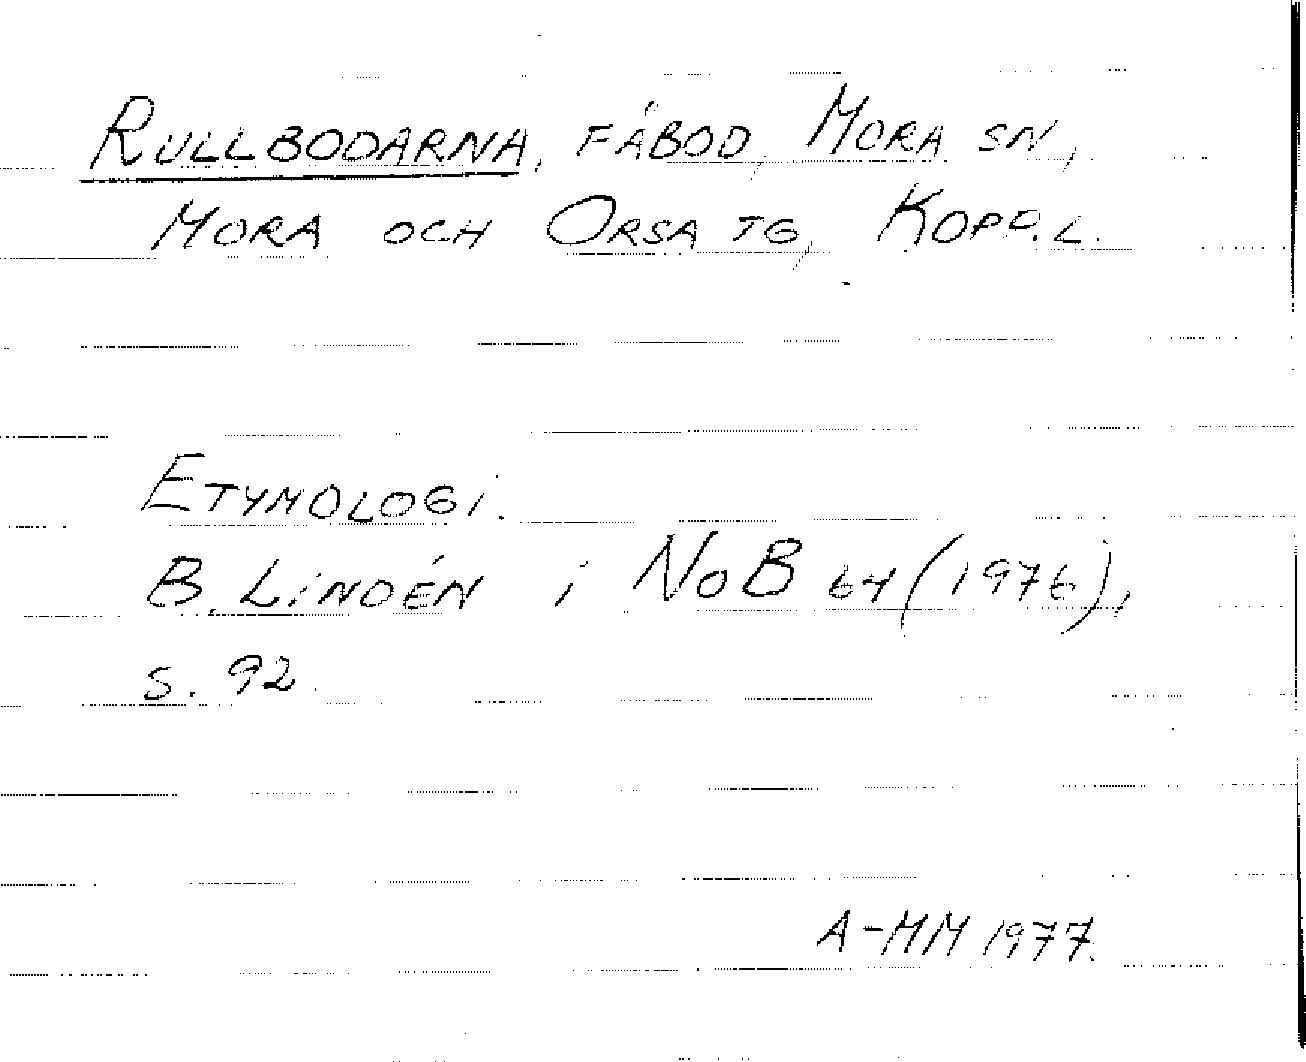 RULLBODARNA, FÄBOD, MORA SN,
MORA OCH ORSA TG, KOPP.L.
ETYMOLOGI.
B. LINDÉN i NoB 64 (1976),
S. 92.
A-MM 1977.